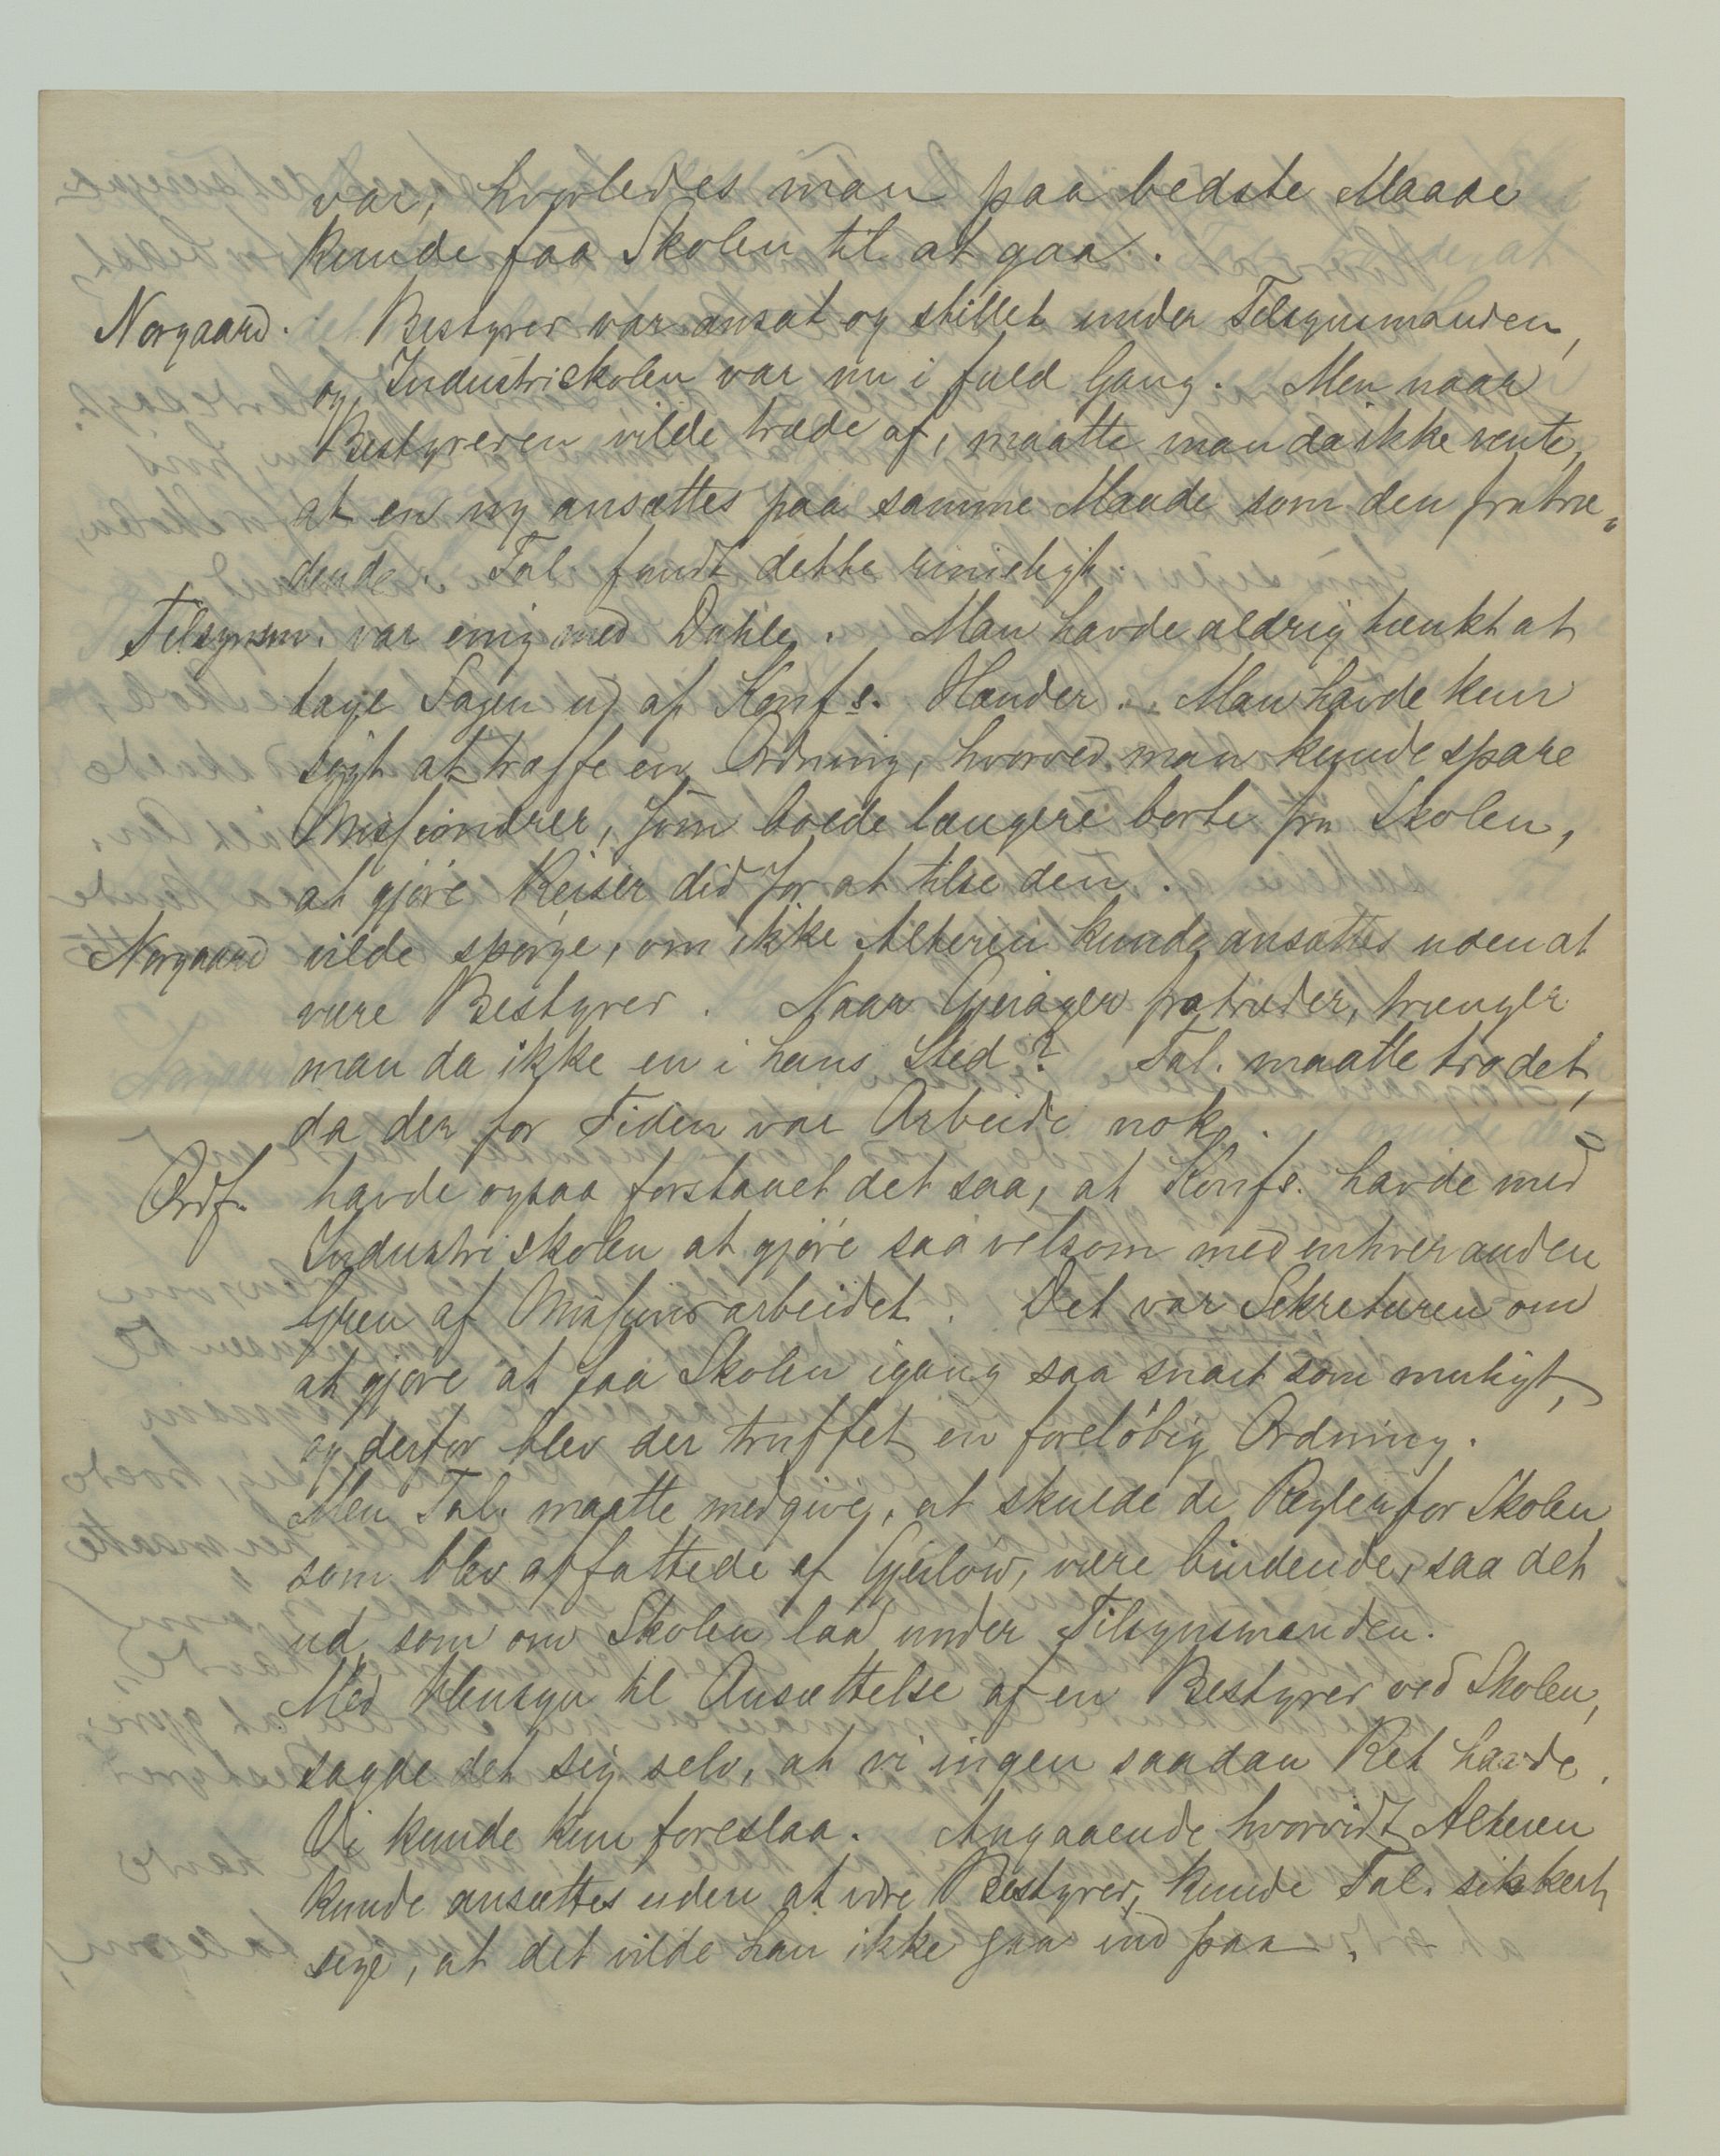 var, hvorledes man paa bedste Maade
kunde faa Skolen til at gaa.
Norgaard. Bestyrer var ansat og stillet under Tilsynsmanden,
og Industriskolen var nu i fuld Gang. Men naar
Bestyreren vilde træde af, maatte man da ikke vente,
at en ny ansættes paa samme Maade som den fratræ-
dende. Tal. fandt dette rimeligt.
Tilsynsm. var enig med Dahle. Man havde aldrig tænkt at
tage Sagen ud af Konfs. Hænder. Man havde kun
søgt at træffe en Ordning, hvorved man kunde spare
Missionærer, som boede længere borte fra Skolen,
at gjøre Reiser did for at tilse den.
Norgaard vilde spørge, om ikke Alteren kunde ansættes uden at
være Bestyrer. Naar fratræder, trænger
man da ikke en i hans Sted? Tal. maatte tro det,
da der for Tiden var Arbeide nok.
Ordf. havde ogsaa forstaaet det saa, at Konfs. havde med
Industriskolen at gjøre saavelsom med enhver anden
Gren af Missionsarbeidet. Det var Sekretæren om
at gjøre at faa Skolen igang saa snart som muligt,
og derfor blev der truffet en foreløbig Ordning.
Men Tal. maatte medgive, at skulde de Regler for Skolen
som blev affattede af Gjerløw, være bindende, saa det
ud, som om Skolen laa under Tilsynsmanden.
Med Hensyn til Ansættelse af en Bestyrer ved Skolen,
sagde det sig selv, at vi ingen saadan Ret havde.
Vi kunde kun foreslaa. Angaaende hvorvidt Alteren
kunde ansættes uden at være Bestyrer, kunde Tal. sikkert
sige, at det vilde han ikke gaa ind paa.